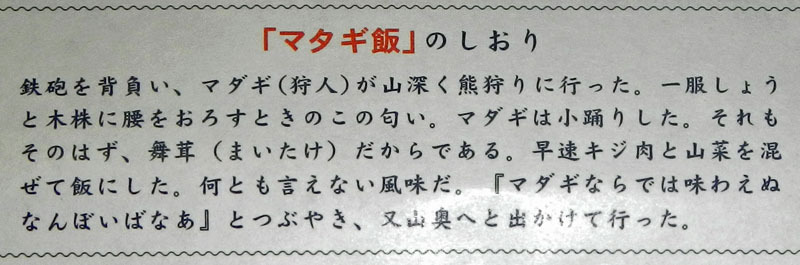 「マタギ飯」のしおり
鉄砲を背負い、マダギ(狩人)が山深く熊狩りに行った。一服しょう
と木株に腰をおろすときのこの匂い。マダギは小踊りした。それも
そのはず、舞茸（まいたけ）だからである。早速キジ肉と山菜を混
ぜて飯にした。何とも言えない風味だ。『マダギならでは味わえぬ
なんぼいばなあ』とつぶやき、又山奥へと出かけて行った。